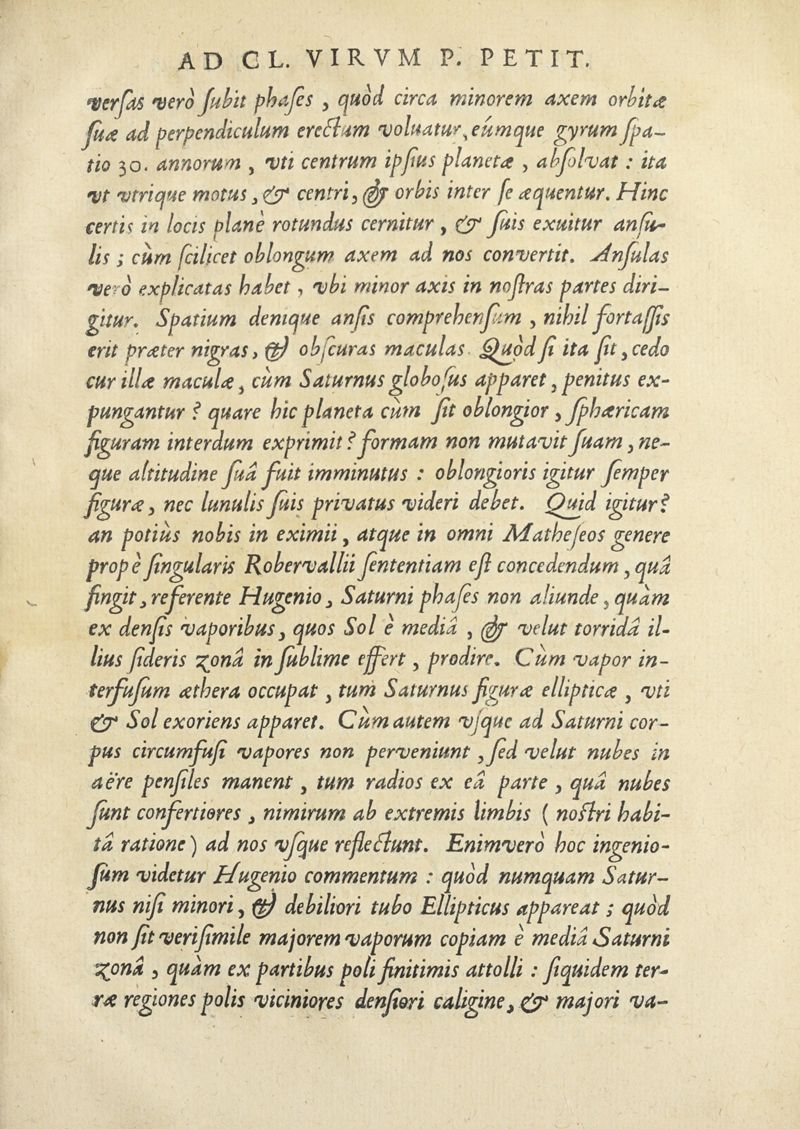 AD CL. VIRVM P. PETIT.
versas verò subit phases, quòd circa minorem axem orbitæ
suæ ad perpendiculum erectum voluatur, eúmque gyrum spa-
tio 30. annorum, vti centrum ipsius planetæ, absolvat : ita
vt vtrique motus, & centri, & orbis inter se æquentur. Hinc
certis in locis planè rotundus cernitur, & suis exuitur ansu-
lis ; cùm scilicet oblongum axem ad nos convertit. Ansulas
verò explicatas habet, vbi minor axis in nostras partes diri-
gitur. Spatium denique ansis comprehensum, nihil fortassis
erit præter nigras, & obscuras maculas. Quòd si ita sit, cedo
cur illæ maculæ, cùm Saturnus globosus apparet, penitus ex-
pungantur ? quare hic planeta cùm sit oblongior, sphæricam
figuram interdum exprimit ? formam non mutavit suam, ne-
que altitudine suâ fuit imminutus : oblongioris igitur semper
figuræ, nec lunulis suis privatus videri debet. Quid igitur ?
an potiùs nobis in eximii, atque in omni Matheseos genere
propè singularis Robervallii sententiam est concedendum, quâ
fingit, referente Hugenio, Saturni phases non aliunde, quàm
ex densis vaporibus, quos Sol è mediâ, & velut torridâ il-
lius sideris zonâ in sublime effert, prodire. Cùm vapor in-
terfusum æthera occupat, tum Saturnus figuræ ellipticæ, vti
& Sol exoriens apparet. Cùm autem vsque ad Saturni cor-
pus circumfusi vapores non perveniunt, sed velut nubes in
aëre pensiles manent, tum radios ex eâ parte, quâ nubes
sunt confertiores, nimirum ab extremis limbis ( nostri habi-
tâ ratione ) ad nos vsque reflectunt. Enimverò hoc ingenio-
sum videtur Hugenio commentum : quòd numquam Satur-
nus nisi minori, & debiliori tubo Ellipticus appareat ; quòd
non sit verisimile majorem vaporum copiam è mediâ Saturni
zonâ, quàm ex partibus poli finitimis attolli : siquidem ter-
ræ regiones polis viciniores densiori caligine, & majori va-